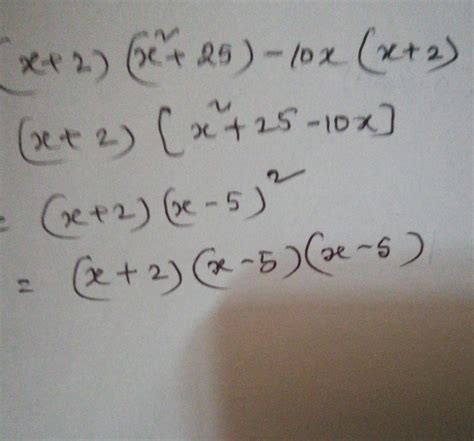 (x+2) (x²+25) -10x (x+2)
(x+2) [x²+25-10x]
= (x+2)(x-5)²
= (x+2)(x-5)(x-5)